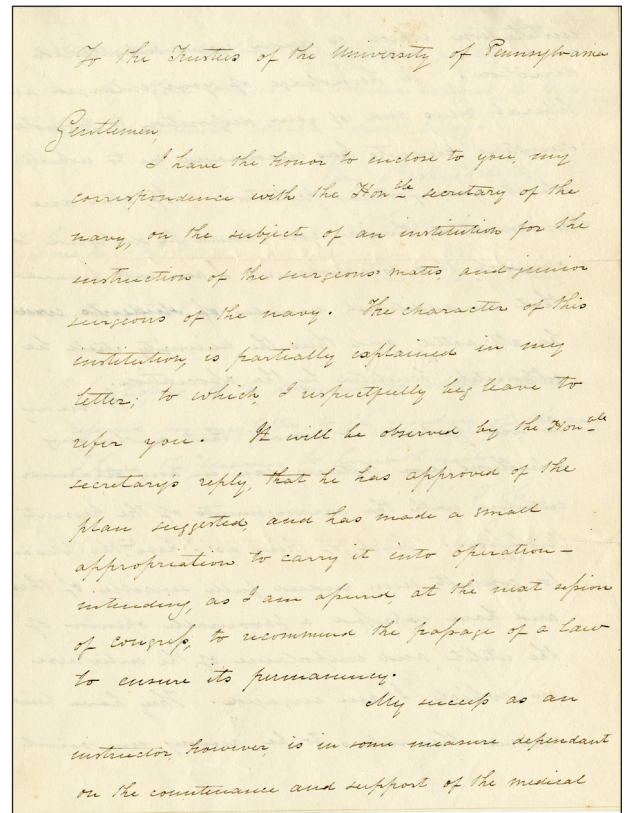 To the Trustees of the University of Pennsylvania
Gentlemen,
I have the honor to enclose to you, my
correspondence with the Honble secretary of the
navy, on the subject of an institution for the
instruction of the surgeons mates, and junior
surgeons of the navy. The character of this
institution, is partially explained in my
letter; to which, I respectfully beg leave to
refer you. It will be observed by the Honble
secretarys reply, that he has approved of the
plan suggested, and has made a small
appropriation to carry it into operation—
intending, as I am assured, at the next session
of congress, to recommend the passage of a law
to ensure its permanency.
My success as an
instructor, however, is in some measure dependant
on the countenance and support of the medical